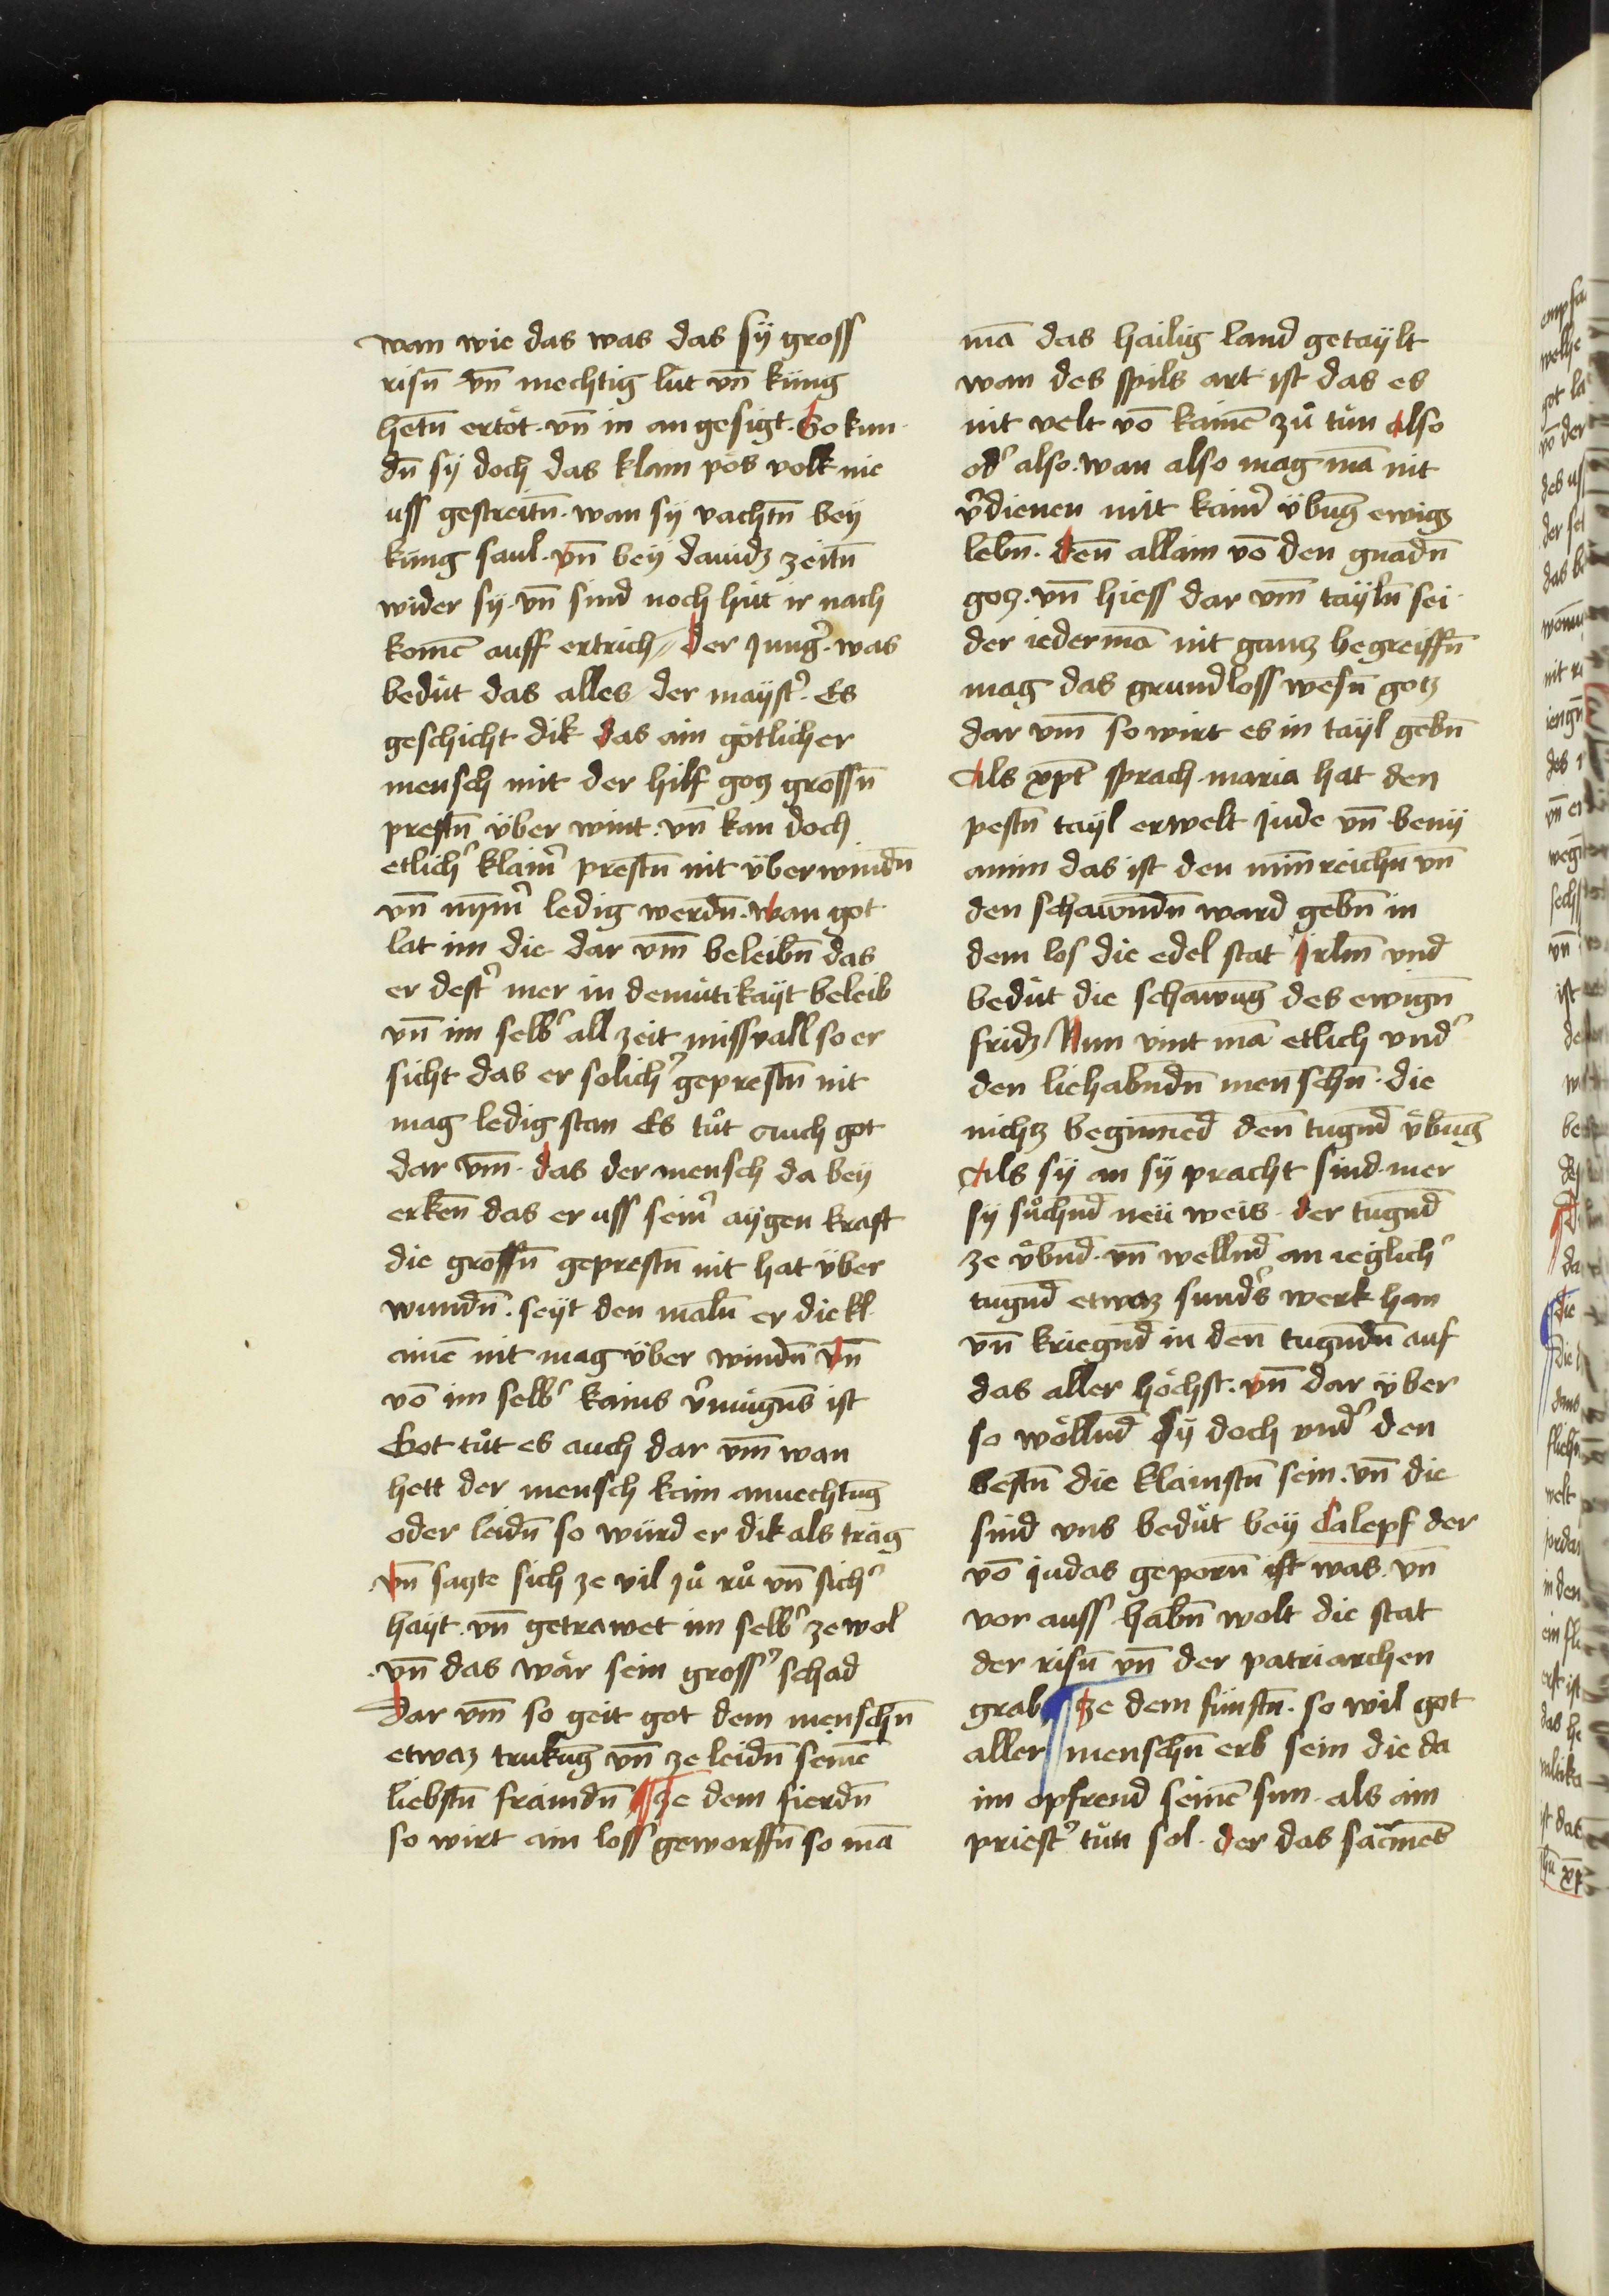 wan wie das was das sÿ gross
risn̄ vn̄ mechtig lüt vn̄ küng
hetn̄ ertöt · vn̄ in an gesigt · So kun
dn̄ sÿ doch das klain pös volk nie
uss gestreitn̄ · wan sÿ vachtn̄ beÿ
küng saul · vn̄ beÿ dauidz zeitn̄
wider sÿ · vn̄ sind noch hüt ir nach
komē auff ertrich der Jungˀ · was
bedüt das alles der maÿstˀ · Es
geschicht dik das ain götlicher
mensch mit der hilf gotz grossn̄
prestn̄ über wint · vn̄ kan doch
etlichˀ klainˀ prestn̄ nit überwindn̄
vn̄ nym̄ˀ ledig werdn̄ · wan got
lat im die dar vm̄ beleibn̄ das
er destˀ mer in demütikaÿt beleib
vn̄ im selbˀ all zeit missvall so er
sicht das er solichˀ geprestn̄ nit
mag ledig stan Es tůt auch got
dar vm̄ · das der mensch da beÿ
erken̄ das er uss seinˀ aÿgen kraft
die grossn̄ geprestn̄ nit hat über
wundn̄ · seÿt den maln̄ er die kl
ainē nit mag über windn̄ vn̄
vō im selbˀ kains vˀmügn̄s ist
Got tůt es auch dar vm̄ wan
hett der mensch kain anuechtūg
oder leidn̄ so würd er dik als träg
vn̄ sagte sich ze vil zů rů vn̄ sichˀ
haÿt · vn̄ getrawet im selbˀ ze wol
vn̄ das wär sein grossˀ schad
Dar vm̄ so geit got dem menschn̄
etwaz trukūg vn̄ ze leidn̄ seinē
liebstn̄ fraindn̄ ¶ ze dem fierdn̄
so wirt ain loss geworffn̄ so mā
mā das hailig land getaÿlt
wan des spils art ist das es
nit velt vō kainē zů tůn also
odˀ also · wan also mag mā nit
vˀdienen mit kainˀ übūg ewigs
lebn̄ · den̄ allain vō den gnadn̄
gotz · vn̄ hiess dar vm̄ taÿln̄ sei
der iedermā nit gantz begreiffn̄
mag das grundloss wesn̄ gotz
dar vm̄ so wirt es in taÿl gebn̄
Als xp̄t sprach maria hat den
pestn̄ taÿl erwelt Jude vn̄ benÿ
amin das ist den minreichn̄ vn̄
den schawndn̄ ward gebn̄ in
dem los die edel stat Jrlm̄ vnd
bedüt die schawūg des ewign̄
fridz Nun vint mā etlich vndˀ
den liebhabndn̄ menschn̄ · die
nichtz begin̄ed den̄ tugn̄d übūg
Als sÿ an sÿ pracht sind · mer
sÿ sůchn̄d neü weis · der tugn̄d
ze übn̄d · vn̄ welln̄d an ieglichˀ
tugn̄d etwaz sundˀs werk han
vn̄ kriegn̄d in den̄ tugn̄dn̄ auf
das aller höchst · vn̄ dar über
so wölln̄d sÿ doch vndˀ den
bestn̄ die klainstn̄ sein · vn̄ die
sind vns bedüt beÿ Calepf der
vō iudas geporn̄ ist was vn̄
vor auss habn̄ wolt die stat
der risn̄ vn̄ der patriarchen
grab ¶ ze dem fünftn̄ · so wil got
aller menschn̄ erb sein die da
im opfrend seinē sun · als ain
priestˀ tůn sol · der das sacm̄et